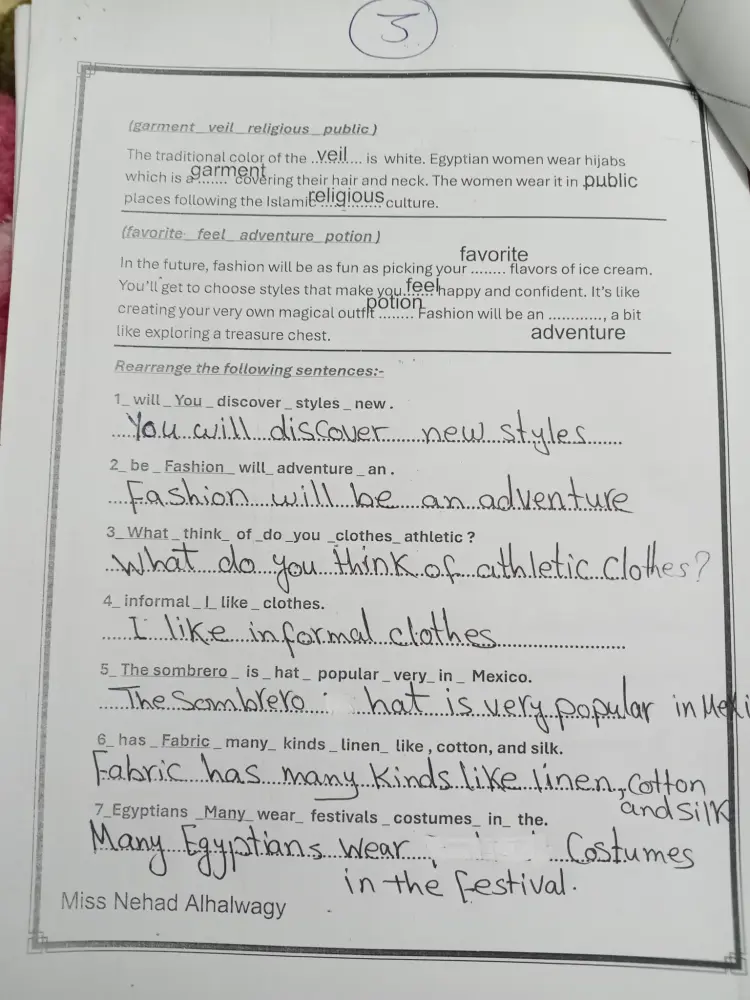 3
(garment_ veil_ religious_ public)
The traditional color of the ..veil.... is white. Egyptian women wear hijabs
which is a garment covering their hair and neck. The women wear it in public
places following the Islamic religious culture.
(favorite_ feel_ adventure_ potion)
In the future, fashion will be as fun as picking your favorite ........ flavors of ice cream.
You'll get to choose styles that make you feel happy and confident. It's like
creating your very own magical outfit potion ........ Fashion will be an ............, a bit
like exploring a treasure chest. adventure
Rearrange the following sentences:-
1_ will _ You _ discover _ styles _ new .
You will discover new styles
2_ be _ Fashion _ will_ adventure _ an .
Fashion will be an adventure
3_ What _ think_ of _do _you _clothes_ athletic ?
What do you think of athletic clothes?
4_ informal _ I_ like _ clothes.
I like informal clothes
5_ The sombrero _ is _ hat_ popular _very_ in _ Mexico.
The Sombrero hat is very popular in Mexi
6_ has _ Fabric _ many_ kinds _ linen_ like , cotton, and silk.
Fabric has many kinds like linen, cotton
and silk
7_Egyptians _Many_ wear_ festivals _ costumes_ in_ the.
Many Egyptians wear Costumes
in the festival.
Miss Nehad Alhalwagy